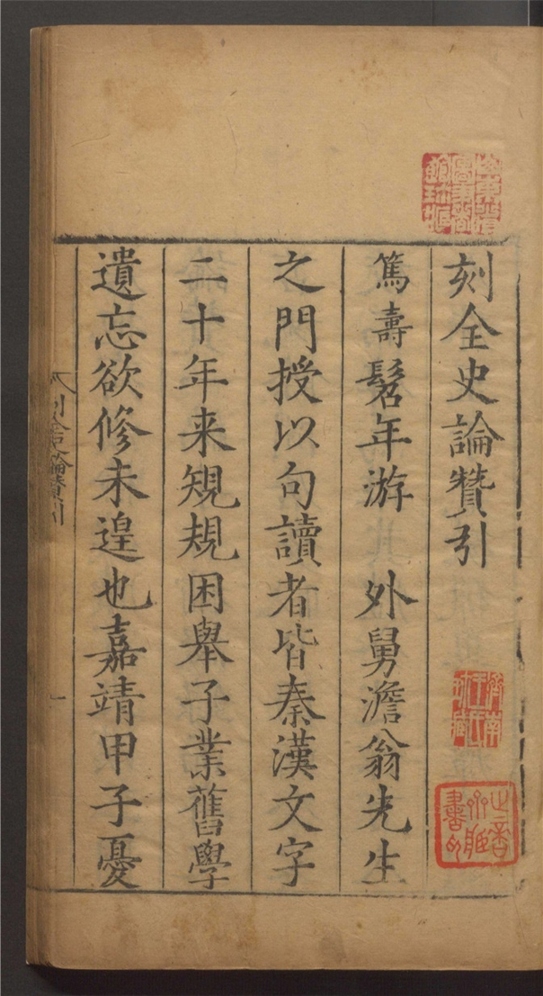 刻全史論贊引
篤壽髫年游　外舅澹翁先生
之門授以句讀者皆秦漢文字
二十年来䂓䂓困舉子業舊學
遺忘欲修未遑也嘉靖甲子憂
刻全史論贊引
一